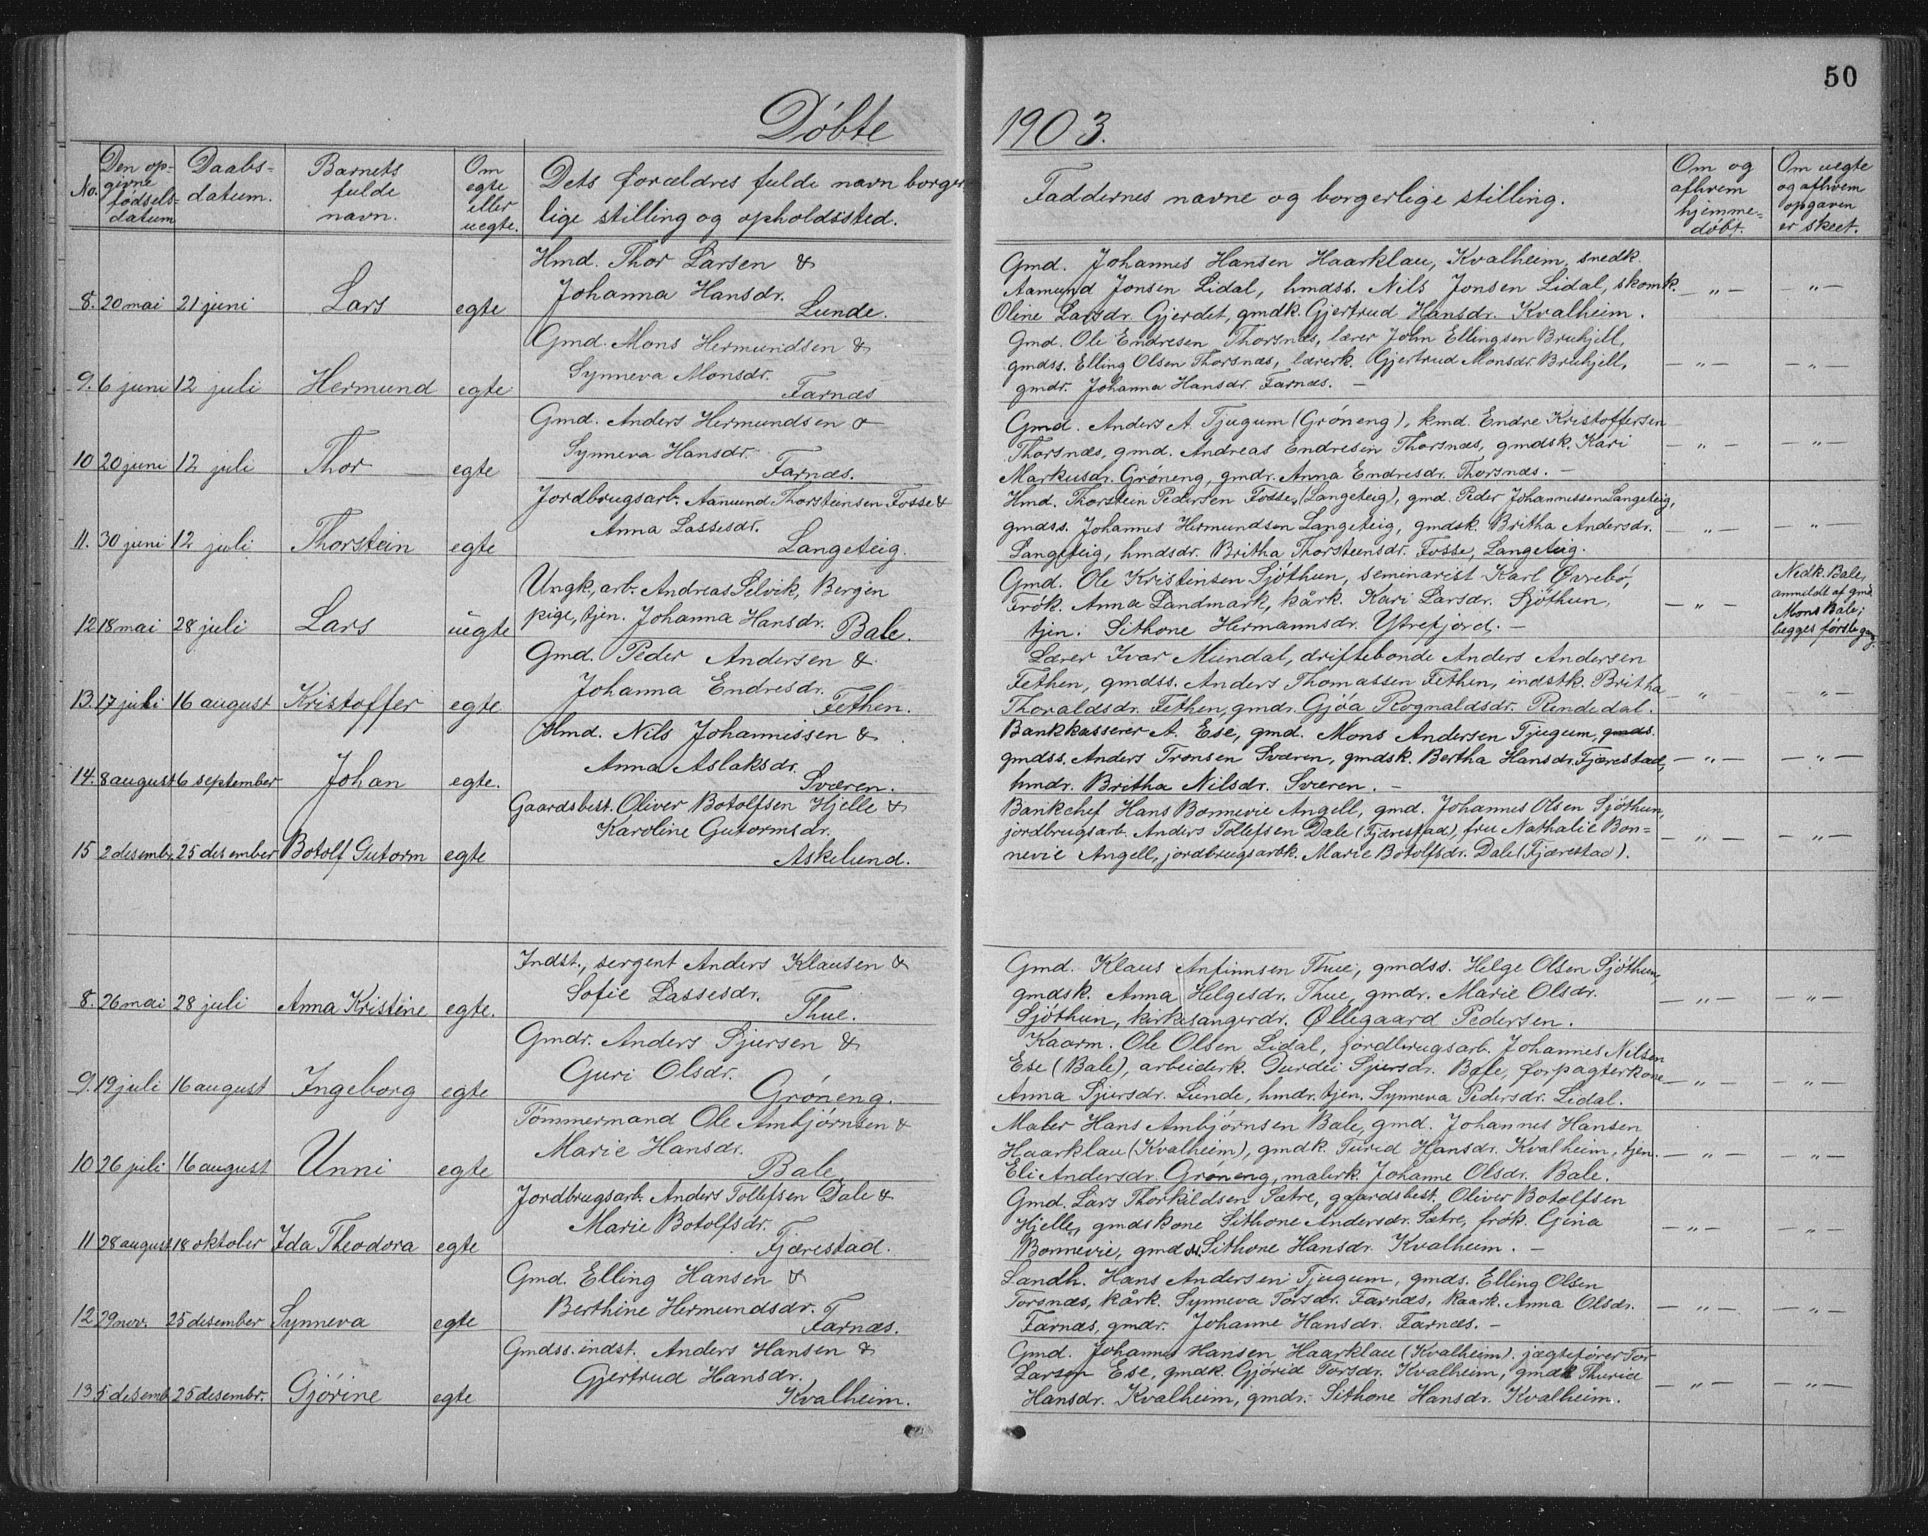 50
Døbte 1903.
No. | Den opgivne fødselsdatum | Daabsdatum. | Barnets fulde navn. | Om egte eller uegte. | Dets forældres fulde navn borgerlige stilling og opholdssted. | Faddernes navne og borgerlige stilling. | Om og afhvem hjemmedøbt. | Om uegte og afhvem opgaven er skeet.
Hmd. Thor Larsen &
Johanna Hansdr.
8. 20 mai 21 juni Lars egte Lunde.
Gmd. Johannes Hansen Haarklau, Kvalheim, snedk.
Aamund Jonsen Lidal, hmdss. Nils Jonsen Lidal, skomk. — „ — — „ —
Oline Larsdr. Gjerdet, gmdk. Gjertrud Hansdr. Kvalheim.
Gmd. Mons Hermundsen &
Synneva Monsdr.
9. 6 juni 12 juli Hermund egte Farnæs
Gmd. Ole Endresen Thorsnæs, lærer John Ellingsen Bruhjell,
gmdss. Elling Olsen Thorsnæs, lærerk. Gjertrud Monsdr. Bruhjell, — „ — — „ —
gmdr. Johanna Hansdr. Farnæs. —
Gmd. Anders Hermundsen &
Synneva Hansdr.
10 20 juni 12 juli Thor egte Farnæs.
Gmd. Anders A. Tjugum (Grøneng), kmd. Endre Kristoffersen
Thorsnæs, gmd. Andreas Endresen Thorsnæs, gmdsk. Kari — „ — — „ —
Markusdr. Grøneng, gmdr. Anna Endresdr. Thorsnæs. —
Jordbrugsarb. Aamund Thorsteinsen Fosse &
Anna Lassesdr.
11. 30 juni 12 juli Thorstein egte Langeteig.
Hmd. Thorstein Pedersen Fosse, (Langeteig), gmd. Peder Johannessen Langeteig,
gmdss. Johannes Hermundsen Langeteig, gmdsk. Britha Andersdr. — „ — — „ —
Langeteig, hmdsdr. Britha Thorsteinsdr. Fosse, Langeteig.
Ungk, arb. Andreas Selvik, Bergen
pige, tjen. Johanna Hansdr.
12 18 mai 28 juli Lars uegte Bale.
Gmd. Ole Kristensen Sjøthun, seminarist Karl Øvrebø,
Frøk. Anna Landmark, kårk. Kari Larsdr. Sjøthun, — „ —
tjen. Sithone Hermannsdr. Ytrefjord. —
Nedk. Bale,
anmeldt af gmd.
Mons Bale;
begges første gang.
Gmd. Peder Andersen &
Johanna Endresdr.
13. 17 juli 16 august Kristoffer egte Fethen.
Lærer Ivar Mundal, driftebonde Anders Andersen
Fethen, gmdss. Anders Thomassen Fethen, indstk. Britha — „ — — „ —
Thoraldsdr. Fethen, gmdr. Gjøa Rognaldsdr. Rendedal.
Hmd. Nils Johannessen &
Anna Aslaksdr.
14. 8 august 6 september Johan egte. Sværen.
Bankkasserer A. Ese, gmd. Mons Andersen Tjugum, gmds.
gmdss. Anders Tronsen Sværen, gmdsk. Bertha Hansdr. Fjærestad, — „ — — „ —
hmdr. Britha Nilsdr. Sværen. —
Gaardsbest. Oliver Botolfsen Hjelle &
Karoline Gutormsdr.
15 2 desembr. 25 desember Botolf Gutorm egte Askelund.
Bankchef Hans Bonnevie Angell, gmd. Johannes Olsen Sjøthun,
jordbrugsarb. Anders Tollefsen Dale (Fjærestad), fru Nathalie Bon= — „ — — „ —
nevie Angell, jordbrugsarbk. Marie Botolfsdr. Dale (Fjærestad).
Indst., sergent Anders Klausen &
Sofie Lassesdr.
8. 26 mai 28 juli Anna Kristine egte. Thue.
Gmd. Klaus Anfinnsen Thue, gmdss. Helge Olsen Sjøthun,
gmdsk. Anna Helgesdr. Thue, gmdr. Marie Olsdr. — „ — — „ —
Sjøthun, kirkesangerdr. Øllegaard Pedersen.
Gmdr. Anders Sjursen &
Guri Olsdr.
9. 19 juli 16 august Ingeborg egte Grøneng.
Kaarm. Ole Olsen Lidal, jordbrugsarb. Johannes Nilsen
Ese (Bale), arbeiderk. Durdei Sjursdr. Bale, forpagterkone — „ — — „ —
Anna Sjursdr. Lunde, hmdr. tjen. Synneva Pedersdr. Lidal.
Tømmermand Ole Ambjørnsen &
Marie Hansdr.
10 26 juli 16 august Unni egte Bale
Maler Hans Ambjørnsen Bale, gmd. Johannes Hansen
Haarklau (Kvalheim), gmdk. Turid Hansdr. Kvalheim, tjen. — „ — — „ —
Eli Andersdr. Grøneng, malerk. Johanne Olsdr. Bale.
Jordbrugsarb. Anders Tollefsen Dale &
Marie Botolfsdr.
11 28 august 18 oktober Ida Theodora egte Fjærestad.
Gmd. Lars Thorkildsen Sætre, gaardsbest. Oliver Botolfsen
Hjelle, gmdskone Sithone Andersdr. Sætre, frøk. Gina — „ — — „ —
Bonnevie, gmdsd. Sithone Hansdr. Kvalheim. —
Gmd. Elling Hansen &
Berthine Hermundsdr.
12 29 nov. 25 desember Synneva egte Farnæs.
Landh. Hans Andersen Tjugum, gmds. Elling Olsen
Torsnæs, kårk. Synneva Torsdr. Farnæs, kaark. Anna Olsdr. — „ — — „ —
Farnæs, gmdr. Johanne Hansdr. Farnæs. —
Gmdss. indst. Anders Hansen &
Gjertrud Hansdr.
13. 5 desemb. 25 desembr. Gjørine egte Kvalheim.
Gmd. Johannes Hansen Haarklau (Kvalheim), jægtefører Tor
Larsen Ese, gmdk. Gjørid Torsdr. Kvalheim, gmdk Thurid — „ — — „ —
Hansdr. Kvalheim, gmdr. Sithone Hansdr. Kvalheim.